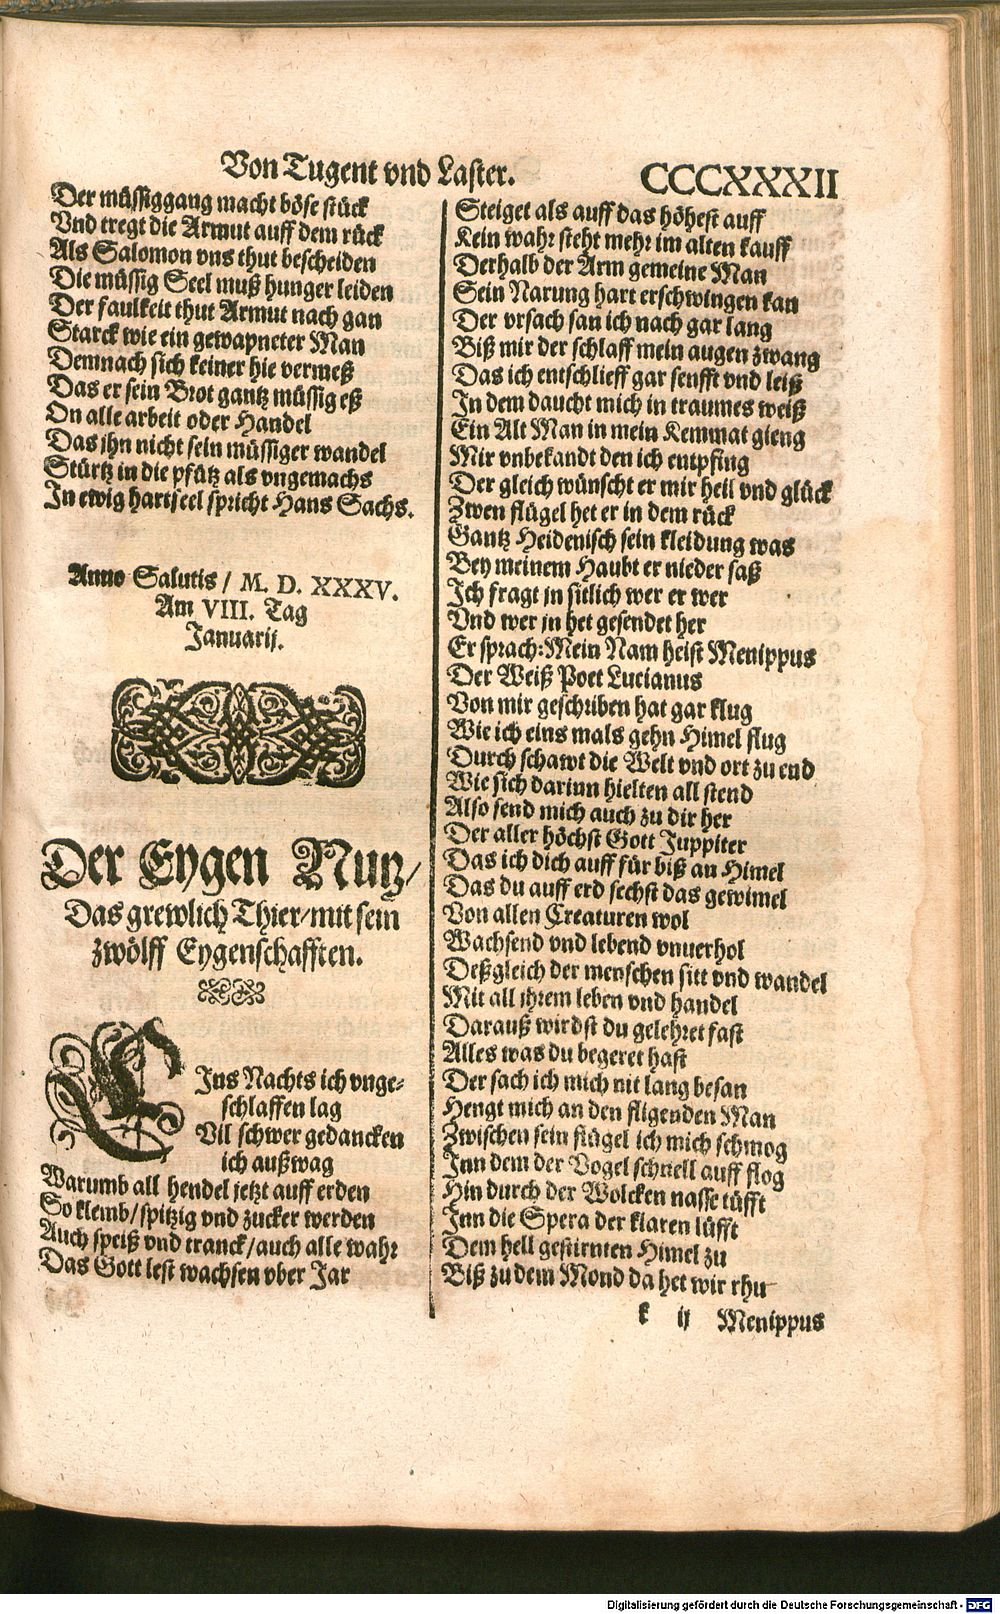 Von Tugent vnd Laster. CCCXXXII
Der müssiggang macht böse stück
Vnd tregt die Armut auff dem rück
Als Salomon vns thut bescheiden
Die müssig Seel muß hunger leiden
Der faulkeit thut Armut nach gan
Starck wie ein gewapneter Man
Demnach sich keiner hie vermeß
Das er sein Brot gantz müssig eß
On alle arbeit oder Handel
Das ihn nicht sein müssiger wandel
Stürtz in die pfütz als vngemachs
In ewig hartseel spricht Hans Sachs.
Anno Salutis / M. D. XXXV.
Am VIII. Tag
Januarij.
Der Eygen Nutz/
Das grewlich Thier/mit sein
zwölff Eygenschafften.
EIns Nachts ich vnge-
schlaffen lag
Vil schwer gedancken
ich außwag
Warumb all hendel jetzt auff erden
So klemb/spitzig vnd zucker werden
Auch speiß vnd tranck/auch alle wahr
Das Gott lest wachsen vber Jar
Steiget als auff das höhest auff
Kein wahr steht mehr im alten kauff
Derhalb der Arm gemeine Man
Sein Narung hart erschwingen kan
Der vrsach san ich nach gar lang
Biß mir der schlaff mein augen zwang
Das ich entschlieff gar senfft vnd leiß
In dem daucht mich in traumes weiß
Ein Alt Man in mein Kemmat gieng
Mir vnbekandt den ich entpfing
Der gleich wünscht er mir heil vnd glück
Zwen flügel het er in dem rück
Gantz Heidenisch sein kleidung was
Bey meinem Haubt er nieder saß
Ich fragt jn sitlich wer er wer
Vnd wer jn het gesendet her
Er sprach: Mein Nam heist Menippus
Der Weiß Poet Lucianus
Von mir geschriben hat gar klug
Wie ich eins mals gehn Himel flug
Durch schawt die Welt vnd ort zu end
Wie sich darinn hielten all stend
Also send mich auch zu dir her
Der aller höchst Gott Juppiter
Das ich dich auff für biß an Himel
Das du auff erd sechst das gewimel
Von allen Creaturen wol
Wachsend vnd lebend vnuerhol
Deßgleich der menschen sitt vnd wandel
Mit all ihrem leben vnd handel
Darauß wirdst du gelehret fast
Alles was du begeret hast
Der sach ich mich nit lang besan
Hengt mich an den fligenden Man
Zwischen sein flügel ich mich schmog
Inn dem der Vogel schnell auff flog
Hin durch der Wolcken nasse tüfft
Inn die Spera der klaren lüfft
Dem hell gestirnten Himel zu
Biß zu dem Mond da het wir rhu
k ij Menippus
Digitalisierung gefördert durch die Deutsche Forschungsgemeinschaft - DFG